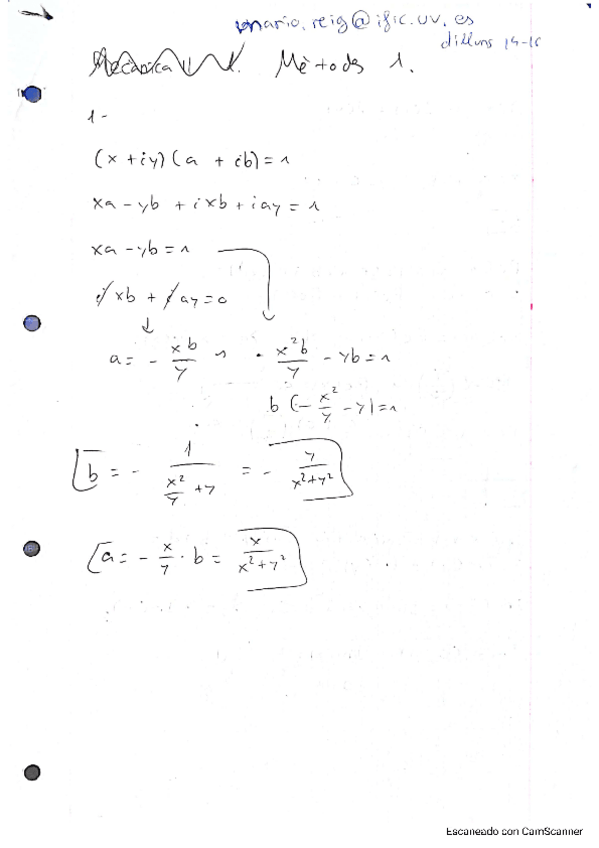 mario.reig@ific.uv.es
dilluns 15-16
Mètodes 1.
1-
(x + iy)(a + ib) = 1
xa - yb + ixb + iay = 1
xa - yb = 1
i xb + i ay = 0
a = - xb/y → - x²b/y - yb = 1
b (- x²/y - y) = 1
b = - 1/(x²/y + y) = - y/(x² + y²)
a = - x/y · b = x/(x² + y²)
Escaneado con CamScanner